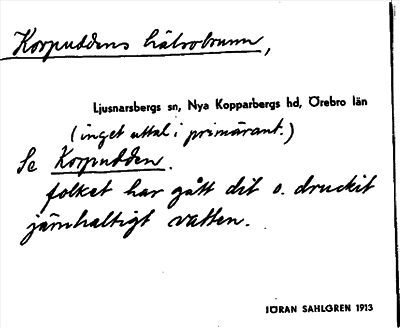 Korpuddens hälsobrunn,
Ljusnarsbergs sn, Nya Kopparbergs hd, Örebro län
(inget uttal i primärant.)
Se Korpudden.
folket har gått dit o. druckit
järnhaltigt vatten.
JÖRAN SAHLGREN 1913